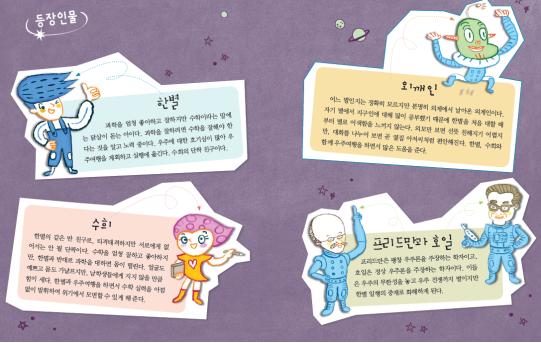 등장인물
한별
과학을 엄청 좋아하고 잘하지만 수학이라는 말에
는 닭살이 돋는 아이다. 과학을 잘하려면 수학을 잘해야 한
다는 것을 알고 노력 중이다. 우주에 대한 호기심이 많아 우
주여행을 계획하고 실행에 옮긴다. 수희의 단짝 친구이다.
외계인
어느 별인지는 정확히 모르지만 분명히 외계에서 날아온 외계인이다.
자기 별에서 지구인에 대해 많이 공부했기 때문에 한별을 처음 대할 때
부터 별로 어색함을 느끼지 않는다. 외모만 보면 선뜻 친해지기 어렵지
만, 대화를 나누어 보면 곧 옆집 아저씨처럼 편안해진다. 한별, 수희와
함께 우주여행을 하면서 많은 도움을 준다.
수희
한별의 같은 반 친구로, 티격태격하지만 서로에게 없
어서는 안 될 단짝이다. 수학을 엄청 잘하고 좋아하지
만, 한별과 반대로 과학을 대하면 몸이 떨린다. 얼굴도
예쁘고 몸도 가냘프지만, 남학생들에게 지지 않을 만큼
힘이 세다. 한별과 우주여행을 하면서 수학 실력을 아낌
없이 발휘하여 위기에서 모면할 수 있게 해 준다.
프리드만과 호일
프리드만은 팽창 우주론을 주장하는 학자이고,
호일은 정상 우주론을 주장하는 학자이다. 이들
은 우주의 무한성을 놓고 우주 전쟁까지 벌이지만
한별 일행의 중재로 화해하게 된다.